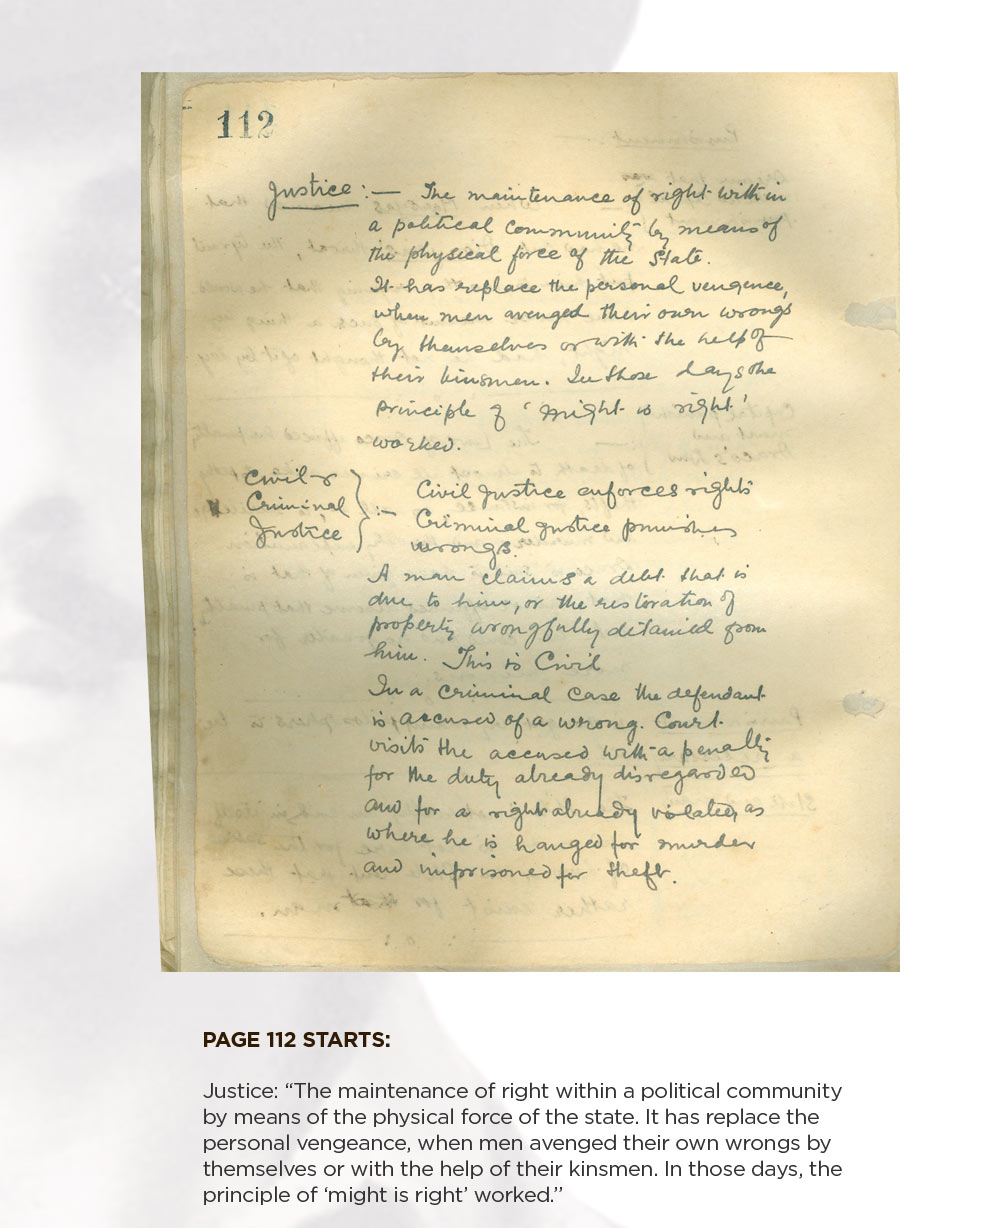 112
Justice :— The maintenance of right within
a political community by means of
the physical force of the State.
It has replace the personal vengence,
when men avenged their own wrongs
by themselves or with the help of
their kinsmen. In those days the
principle of 'might is right'
worked.
Civil &
Criminal
Justice } :— Civil Justice enforces rights
Criminal Justice punishes
wrongs.
A man claims a debt that is
due to him, or the restoration of
property wrongfully detained from
him. This is Civil
In a criminal case the defendant
is accused of a wrong. Court
visits the accused with a penalty
for the duty already disregarded
and for a right already violated, as
where he is hanged for murder
and imprisoned for theft.
PAGE 112 STARTS:
Justice: “The maintenance of right within a political community
by means of the physical force of the state. It has replace the
personal vengeance, when men avenged their own wrongs by
themselves or with the help of their kinsmen. In those days, the
principle of ‘might is right’ worked.”